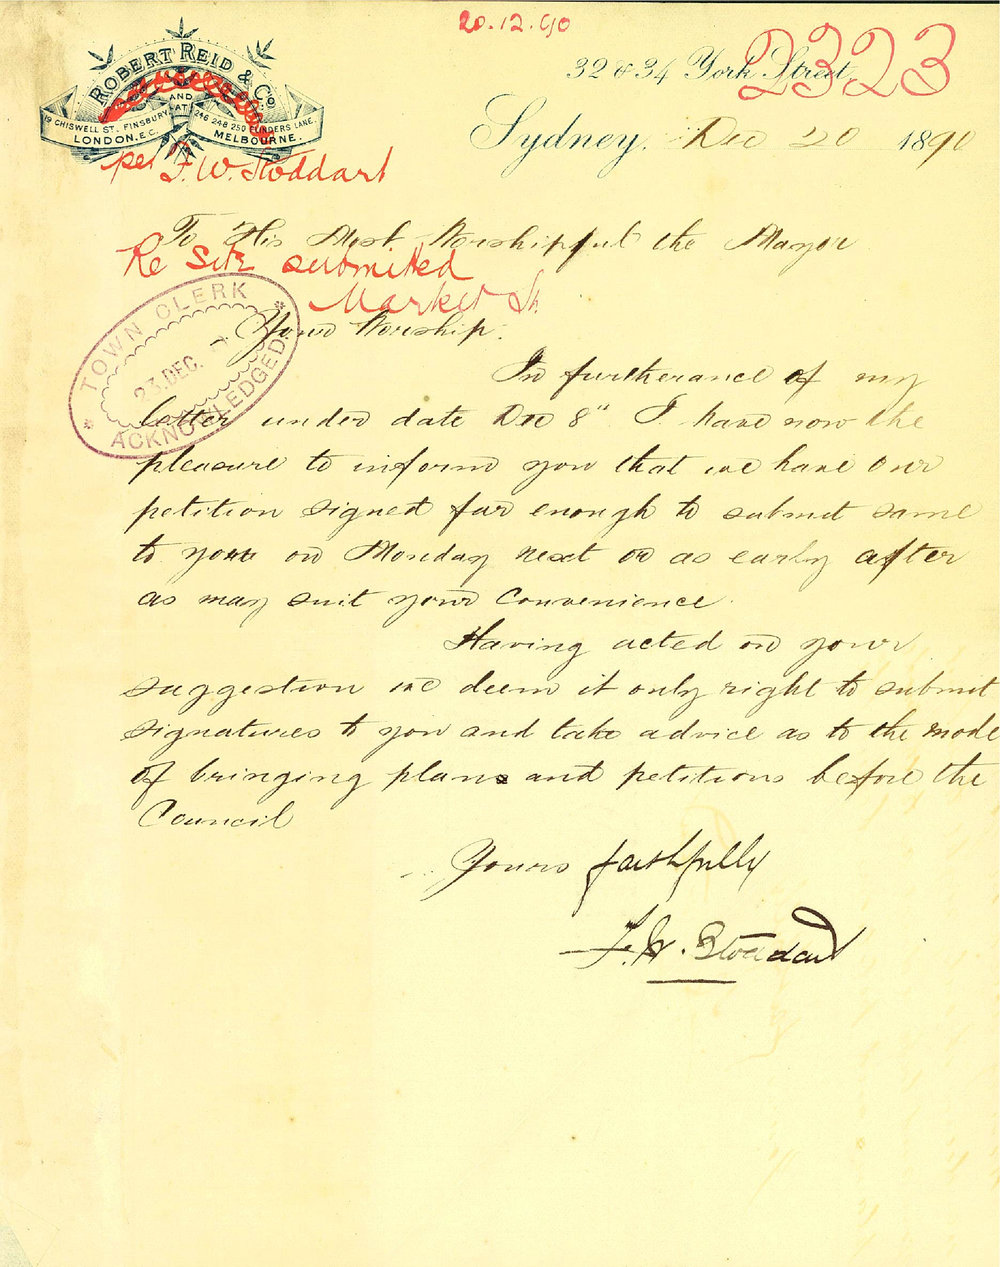 20.12.90
2323
ROBERT REID & Co
AND
AT
19 CHISWELL ST. FINSBURY
LONDON. E.C.
246 248 250 FLINDERS LANE,
MELBOURNE.
per F. W. Stoddart
32 & 34 York Street,
Sydney, Dec 20 1890
To His Most Worshipful the Mayor
Re Site submitted
Market St.
TOWN CLERK
23. DEC.
ACKNOWLEDGED.
Your Worship.
In furtherance of my
letter under date Dec 8" I have now the
pleasure to inform you that we have our
petition signed far enough to submit same
to you on Monday next or as early after
as may suit your convenience.
Having acted on your
suggestion we deem it only right to submit
signatures to you and take advice as to the mode
of bringing plans and petitions before the
Council
Yours faithfully
F. W. Stoddart